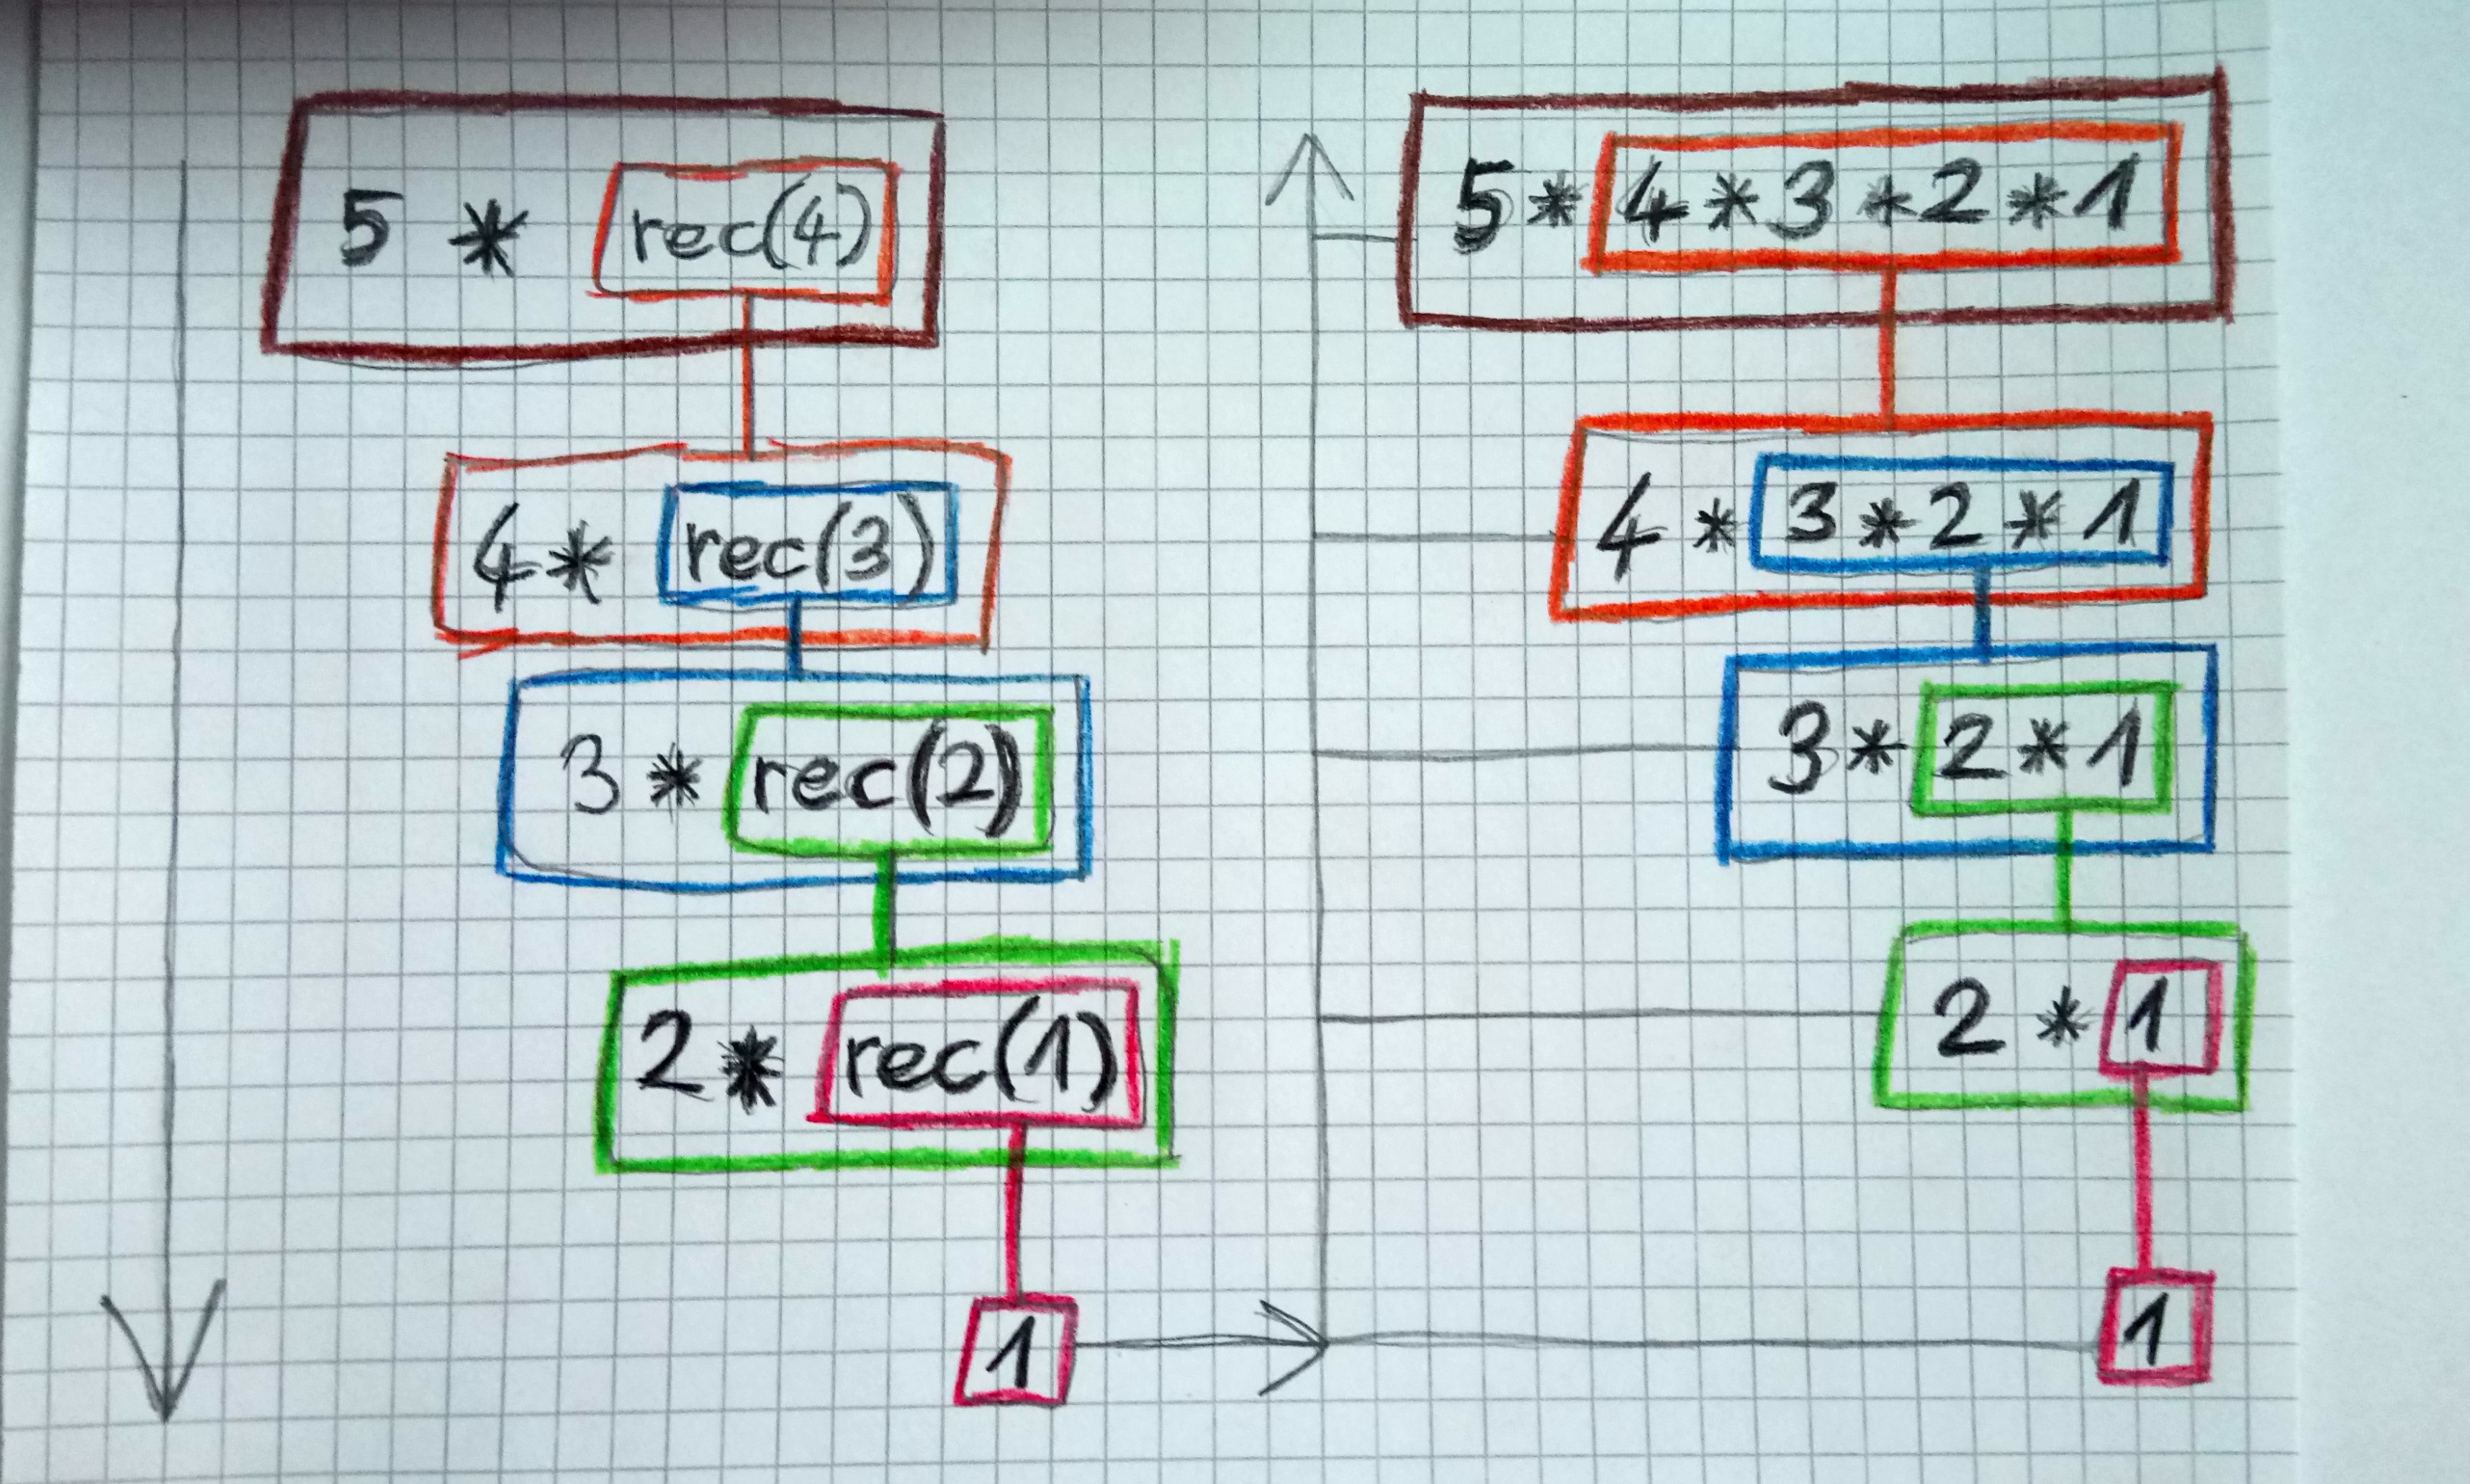 5 * rec(4)
4 * rec(3)
3 * rec(2)
2 * rec(1)
1
5 * 4 * 3 * 2 * 1
4 * 3 * 2 * 1
3 * 2 * 1
2 * 1
1